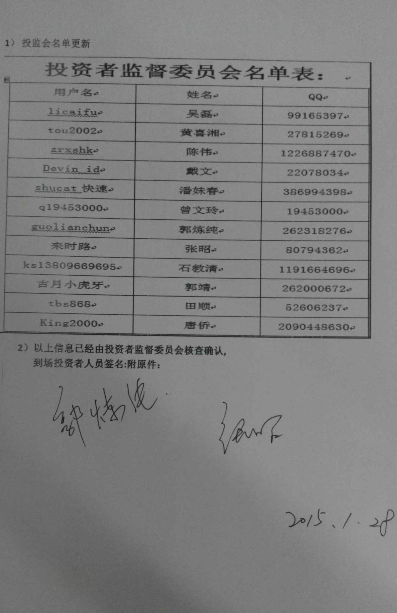 1） 投监会名单更新
投资者监督委员会名单表：
用户名 姓名 QQ
licaifu 吴磊 99165397
tou2002 黄喜湘 27815269
zrxshk 陈伟 1226887470
Devin_id 戴文 22078034
shucat_快速 潘妹春 386994398
q19453000 曾文玲 19453000
guolianchun 郭炼纯 262318276
来时路 张昭 80794362
ks13809669695 石教清 1191664696
古月小虎牙 郭靖 262000672
tbs868 田顺 52606237
King2000 唐侨 2090448630
2）以上信息已经由投资者监督委员会核查确认，
到场投资者人员签名:附原件：
郭炼纯
2015.1.28